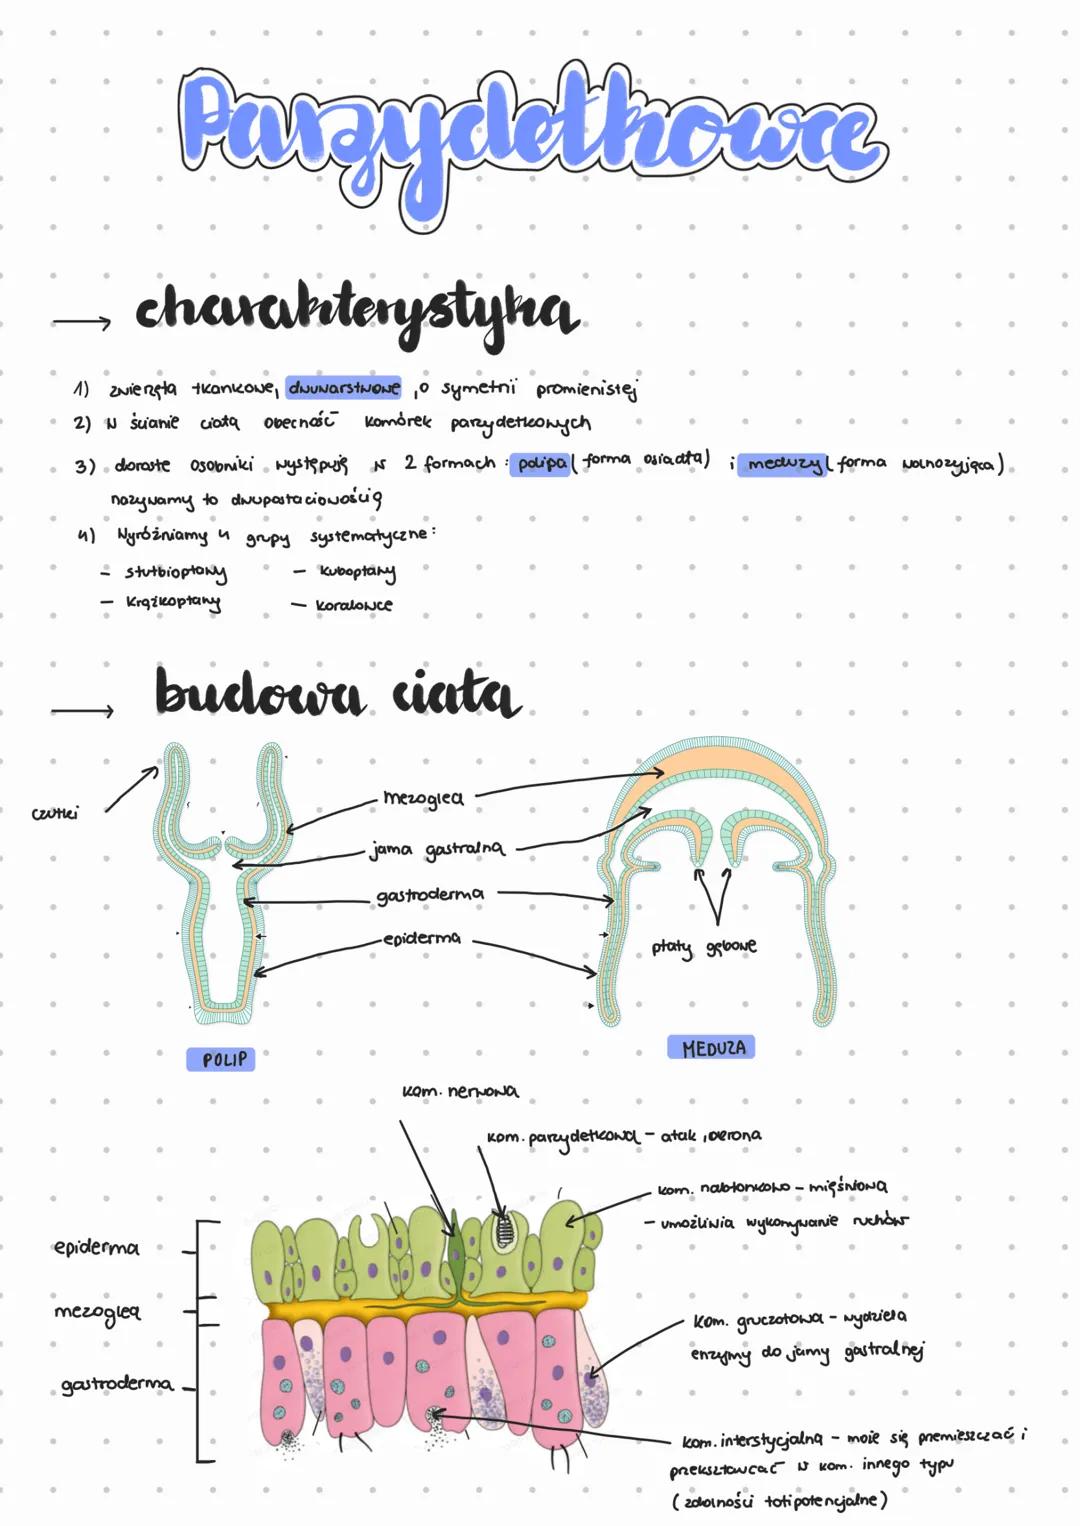 Parzydełkowce
charakterystyka
1) zwierzęta tkankowe, dwuwarstwowe, o symetrii promienistej
2) W ścianie ciała obecność komórek parzydełkowych
3) dorosłe osobniki występują w 2 formach: polipa (forma osiadła) i meduzy (forma wolnożyjąca)
nazywamy to dwupostaciowością
4) Wyróżniamy 4 grupy systematyczne:
- stułbiopławy - kubopławy
- krążkopławy - koralowce
budowa ciała
czułki
mezoglea
jama gastralna
gastroderma
epiderma
płaty gębowe
POLIP
MEDUZA
kom. nerwowa
kom. parzydełkowa - atak, obrona
kom. nabłonkowo - mięśniowa
- umożliwia wykonywanie ruchów
epiderma
mezoglea
gastroderma
kom. gruczołowa - wydziela
enzymy do jamy gastralnej
kom. interstycjalna - może się przemieszczać i
przekształcać w kom. innego typu
(zdolności totipotencjalne)